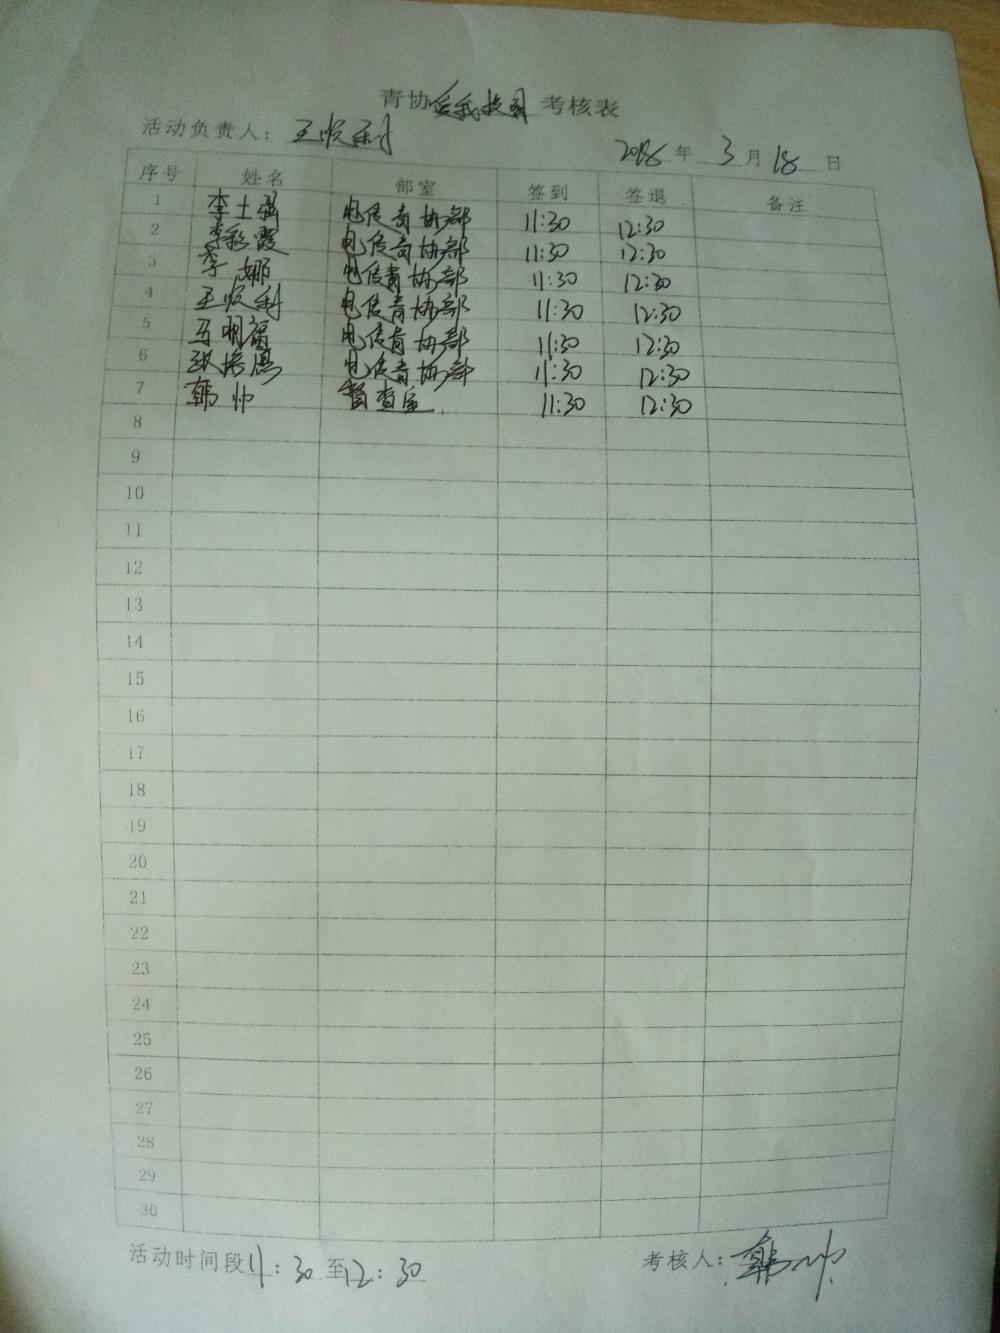 青协爱我校园考核表
活动负责人：王顺利
2018年 3月18日
序号 姓名 部室 签到 签退 备注
1 李士强 电信青协部 11:30 12:30
2 李彩霞 电信青协部 11:30 12:30
3 李娜 电信青协部 11:30 12:30
4 王顺利 电信青协部 11:30 12:30
5 马明 电信青协部 11:30 12:30
6 电信青协部 11:30 12:30
7 韩帅 督查室 11:30 12:30
8
9
10
11
12
13
14
15
16
17
18
19
20
21
22
23
24
25
26
27
28
29
30
活动时间段11:30至12:30 考核人：韩帅